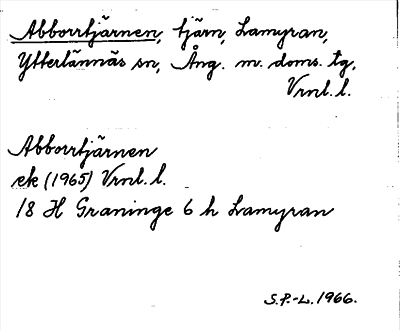 Abborrtjärnen, tjärn, Lamyran,
Ytterlännäs sn, Ång. m. doms. tg,
Vrnl. l.
Abborrtjärnen
ek (1965) Vrnl. l.
18 H Graninge 6 h Lamyran
S.P.-L. 1966.